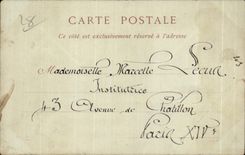 28
CARTE POSTALE
Ce côté est exclusivement réservé à l'adresse
Mademoiselle Marcelle
Institutrice
43 Avenue de Chatillon
Paris XIVe